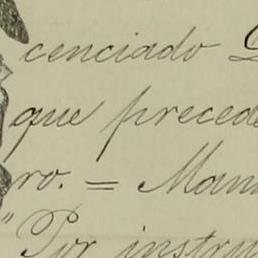 cenciado
que precede
ro. = Man
"Por instru